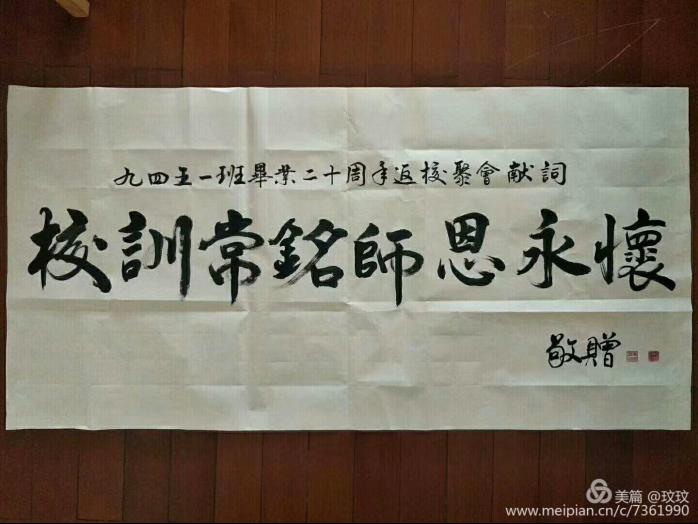 九四五一班畢業二十周年返校聚會献詞
校訓常銘師恩永懷
敬贈
美篇 @玟玟
www.meipian.cn/c/7361990